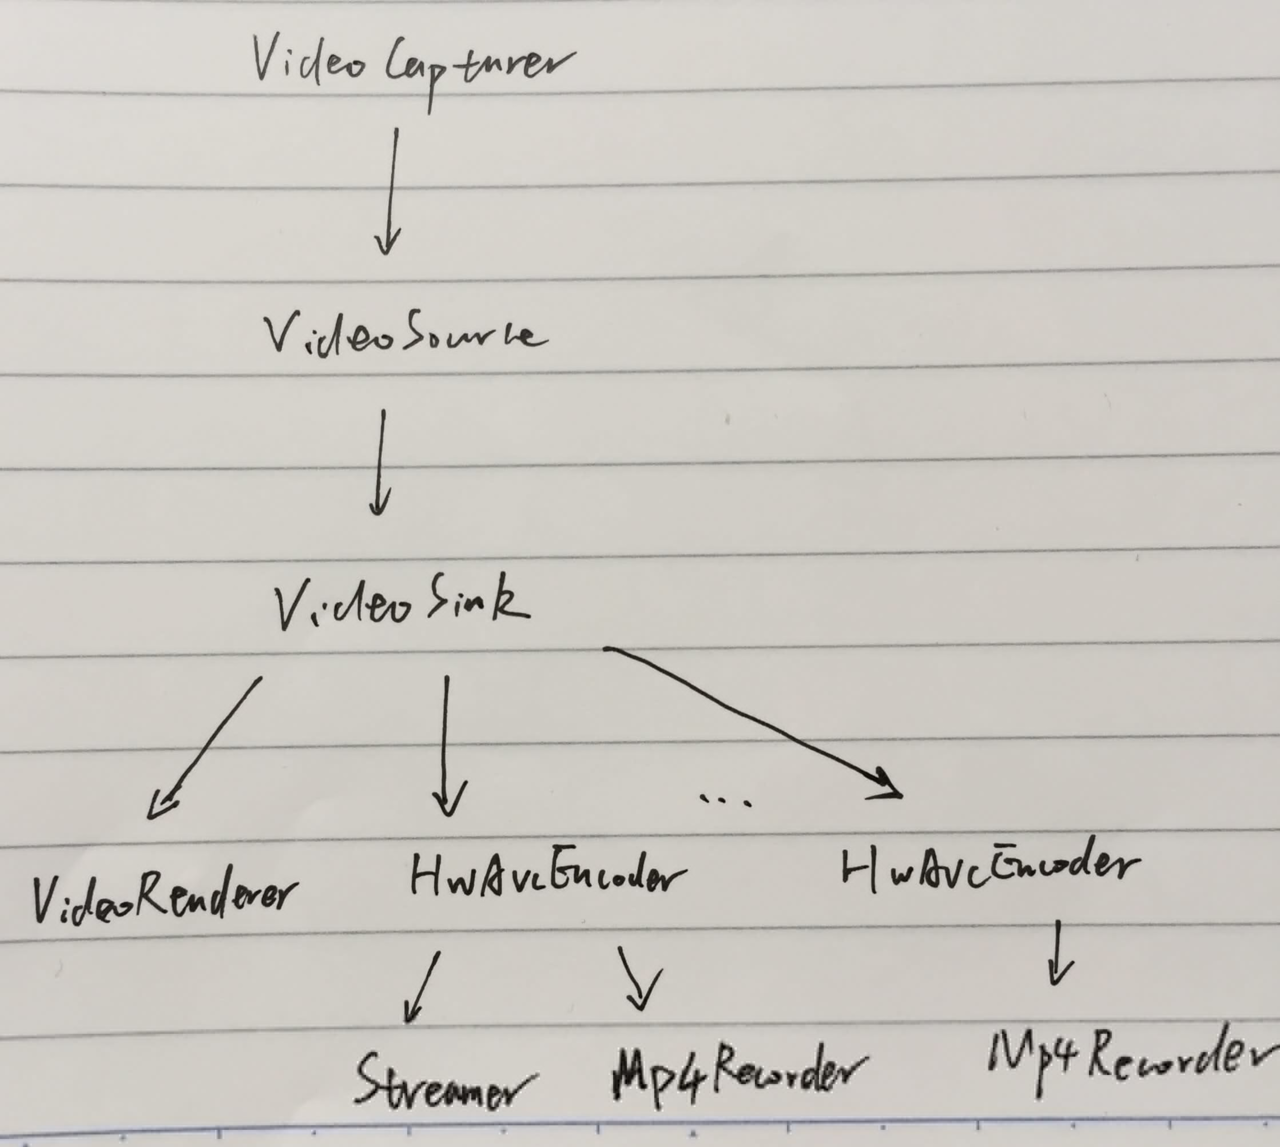 VideoCapturer
VideoSource
VideoSink
...
VideoRenderer HwAvcEncoder HwAvcEncoder
Streamer Mp4Recorder Mp4Recorder